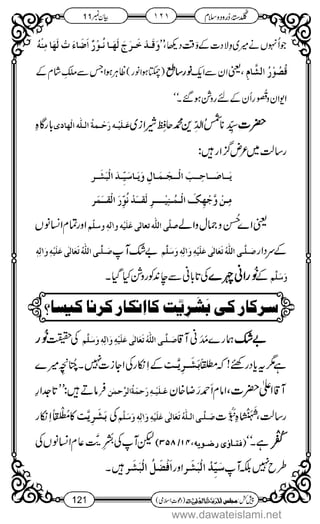 گلدستۂ درود و سلام ١٢١ بیان نمبر 11
جو اُنہوں نے میری ولادت کے وقت دیکھا،’’وَقَدْ خَرَجَ لَھَا نُوْرٌ اَضَاءَ تْ لَھَا مِنْهُ
قُصُوْرُ الشَّامِ یعنی، ان سے ایک نورِ ساطع (چمکتا ہوا نور) ظاہر ہوا جس سے ملکِ شام کے
ایوان و قُصُور اُن کے لئے روشن ہو گئے۔‘‘
حضرت سیِّدنا شمس الدِّین محمد حافظ شیرازی علیہ رحمۃ اللہ الھادی بارگاہِ
رسالت میں عرض گزار ہیں:
یَــا صَــاحِــبَ الْــجَــمَــالِ وَیَــا سَیِّــدَ الْبَشَــر
مِــنْ وَّجْھِکَ الْــمُــنِــیْــرِ لَــقَــدْ نُوِّرَ الْقَمَــر
یعنی اے حُسن و جمال والے صلَّی اللہُ تعالٰی علیہ واٰلہٖ وسلَّم اور تمام انسانوں
کے سردار صلَّی اللہُ تعالٰی علیہ واٰلہٖ وسلَّم بے شک آپ صَلَّی اللہُ تَعَالٰی عَلَیْہِ وَاٰلِہٖ
وَسَلَّم کے نُورانی چہرے کی تابانی سے چاند کو روشن کیا گیا۔
سرکار کی بَشَرِیَّت کا اِنکار کرنا کیسا؟
بے شک ہمارے آقا مَدَنی صَلَّی اللہُ تَعَالٰی عَلَیْہِ وَاٰلِہٖ وَسَلَّم کی حقیقت نُور
ہے مگر یہ یاد رہے کہ! مُطْلقاً بَشَرِیَّت کے اِنکار کی اجازت نہیں۔ چنانچہ میرے
آقا اعلیٰ حضرت، امام احمد رضا خان عَلَیْہِ رَحْمَۃُ الرَّحْمٰن فرماتے ہیں: ’’تاجدارِ
رسالت، شَہَنْشاہِ نُبُوَّت صَلَّی اللہُ تَعَالٰی عَلَیْہِ وَاٰلِہٖ وَسَلَّم کی بَشَرِیَّت کا مُطْلقاً اِنکار
کُفْر ہے۔‘‘ (فتاویٰ رضویہ، ۱۴/۳۵۸) لیکن آپ کی بَشَرِیَّت عام انسانوں کی
طرح نہیں بلکہ آپ سَیِّدُ الْبَشَر اور اَفْضَلُ الْبَشَر ہیں۔
121
www.dawateislami.net